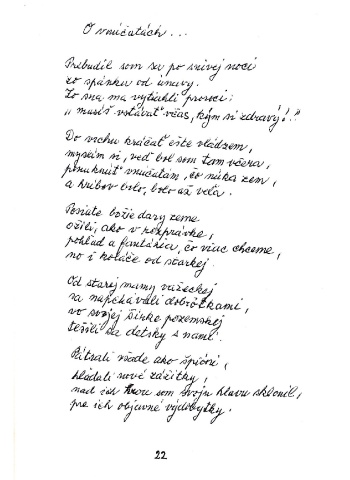 O vnúčatách...
Prebudil som sa po snivej noci
zo spánku od únavy.
Zo sna ma vytiahli proroci:
"musíš vstávať včas, kým si zdravý!"
Do vrchu kráčať ešte vládzem,
myslím si, veď bol som tam včera,
ponuknúť vnúčatám, čo núka zem,
a hríbov bolo, bolo až veľa.
Posiate božie dary zeme
ožili, ako v rozprávke,
pohľad a fantázia, čo viac chceme,
no i koláče od starkej.
Od starej mamy vážeckej
sa napchávali dobrôtkami,
vo svojej šírke pozemskej
tešili sa detsky s nami.
Pátrali všade ako špióni,
hľadali nové zážitky,
nad ich tvorou som svoju hlavu sklonil,
pre ich objavné výdobytky.
22